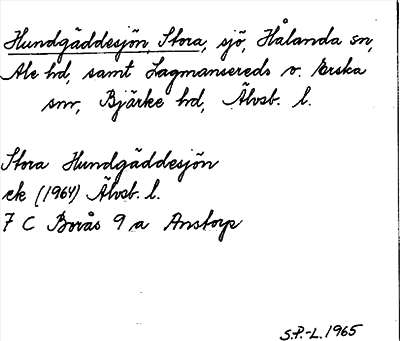 Hundgäddesjön, Stora, sjö, Hålanda sn,
Ale hd, samt Lagmansereds o. Erska
snr, Bjärke hd, Älvsb. l.
Stora Hundgäddesjön
ek (1964) Älvsb. l.
7 C Borås 9 a Anstorp
S.P.-L. 1965